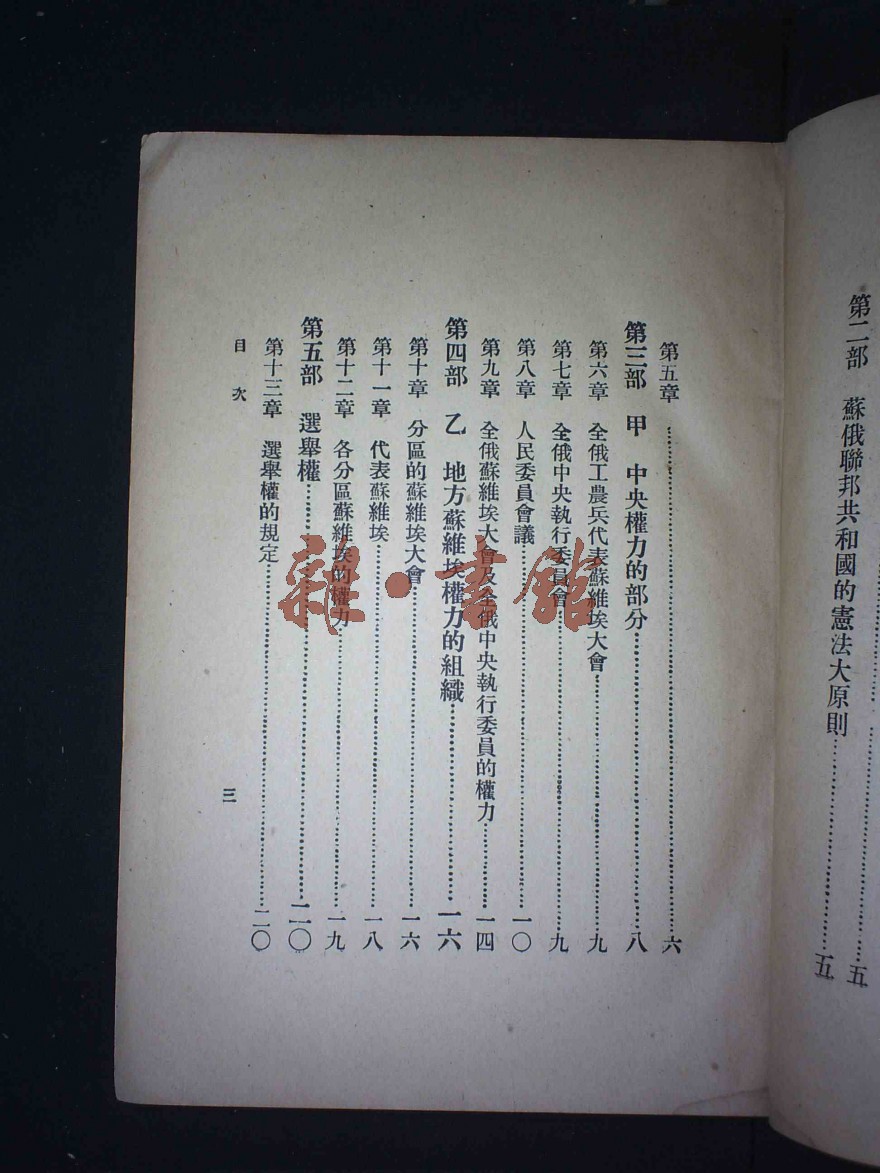 第二部　蘇俄聯邦共和國的憲法大原則……五
五
第五章……六
第三部　甲　中央權力的部分……八
第六章　全俄工農兵代表蘇維埃大會……九
第七章　全俄中央執行委員會……九
第八章　人民委員會議……一〇
第九章　全俄蘇維埃大會及全俄中央執行委員的權力……一四
第四部　乙　地方蘇維埃權力的組織……一六
第十章　分區的蘇維埃大會……一六
第十一章　代表蘇維埃……一八
第十二章　各分區蘇維埃的權力……一九
第五部　選舉權……二〇
第十三章　選舉權的規定……二〇
目次
三
雜·書館